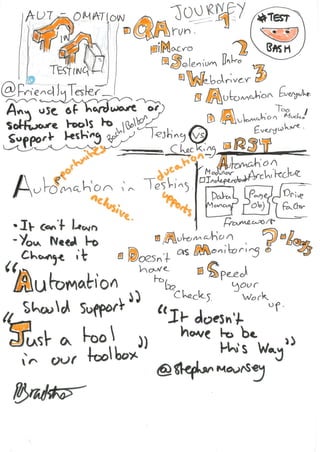 AUT-OMATION
IN
TESTING
@FriendlyTester
Any use of hardware or
software tools to
support testing
Bach/Bolton
JOURNEY
#TEST
BASH
QA run. 1
Macro 2
Selenium Intro
Webdriver 3
Automation Everywhere
Automation Too Much!
Everywhere.
Testing VS
Checking
RST
opportunities
education
Automation in Testing
inclusive.
supports
Automation
Modular
Independent Architecture
Data
Manag
Page
Obj
Drive
Factor
Framework
- It can't Learn
- You Need to
Change it
"Automation
Should Support"
"Just a tool
in our toolbox"
Automation
as Monitoring?
Doesn't
have
to be
Checks
Speed
your
work
up.
"It doesn't
have to be
this way"
@stephenmounsey